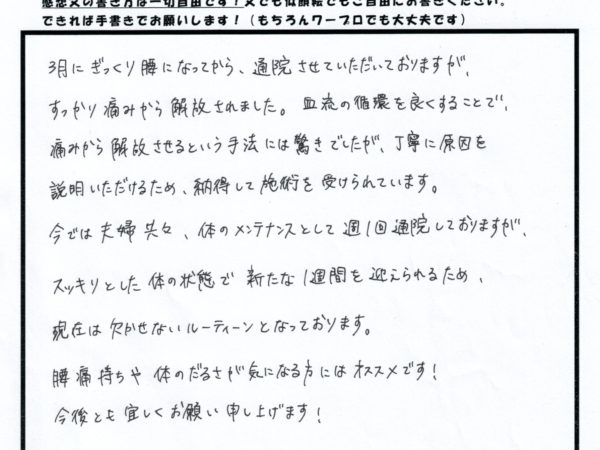 感想文の書き方は一切自由です！文でも似顔絵でもご自由にお書きください。
できれば手書きでお願いします！（もちろんワープロでも大丈夫です）
3月にぎっくり腰になってから、通院させていただいておりますが、
すっかり痛みから解放されました。血流の循環を良くすることで、
痛みから解放させるという手法には驚きでしたが、丁寧に原因を
説明いただけるため、納得して施術を受けられています。
今では夫婦共々、体のメンテナンスとして週1回通院しておりますが、
スッキリとした体の状態で新たな1週間を迎えられるため、
現在は欠かせないルーティーンとなっております。
腰痛持ちや体のだるさが気になる方にはオススメです！
今後とも宜しくお願い申し上げます！